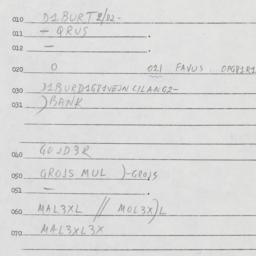 010 D1BURT2/D2-
011 - QRUS
012 -
020 0 021 FAVUS.
030 D1BURD1G81VEJNCILANG2-
031 )BANK
040 GOJD3R
050 GROJS MUL )-GROJS
051 -
060 MAL3XL // MOL3X)L
070 MAL3XL3X